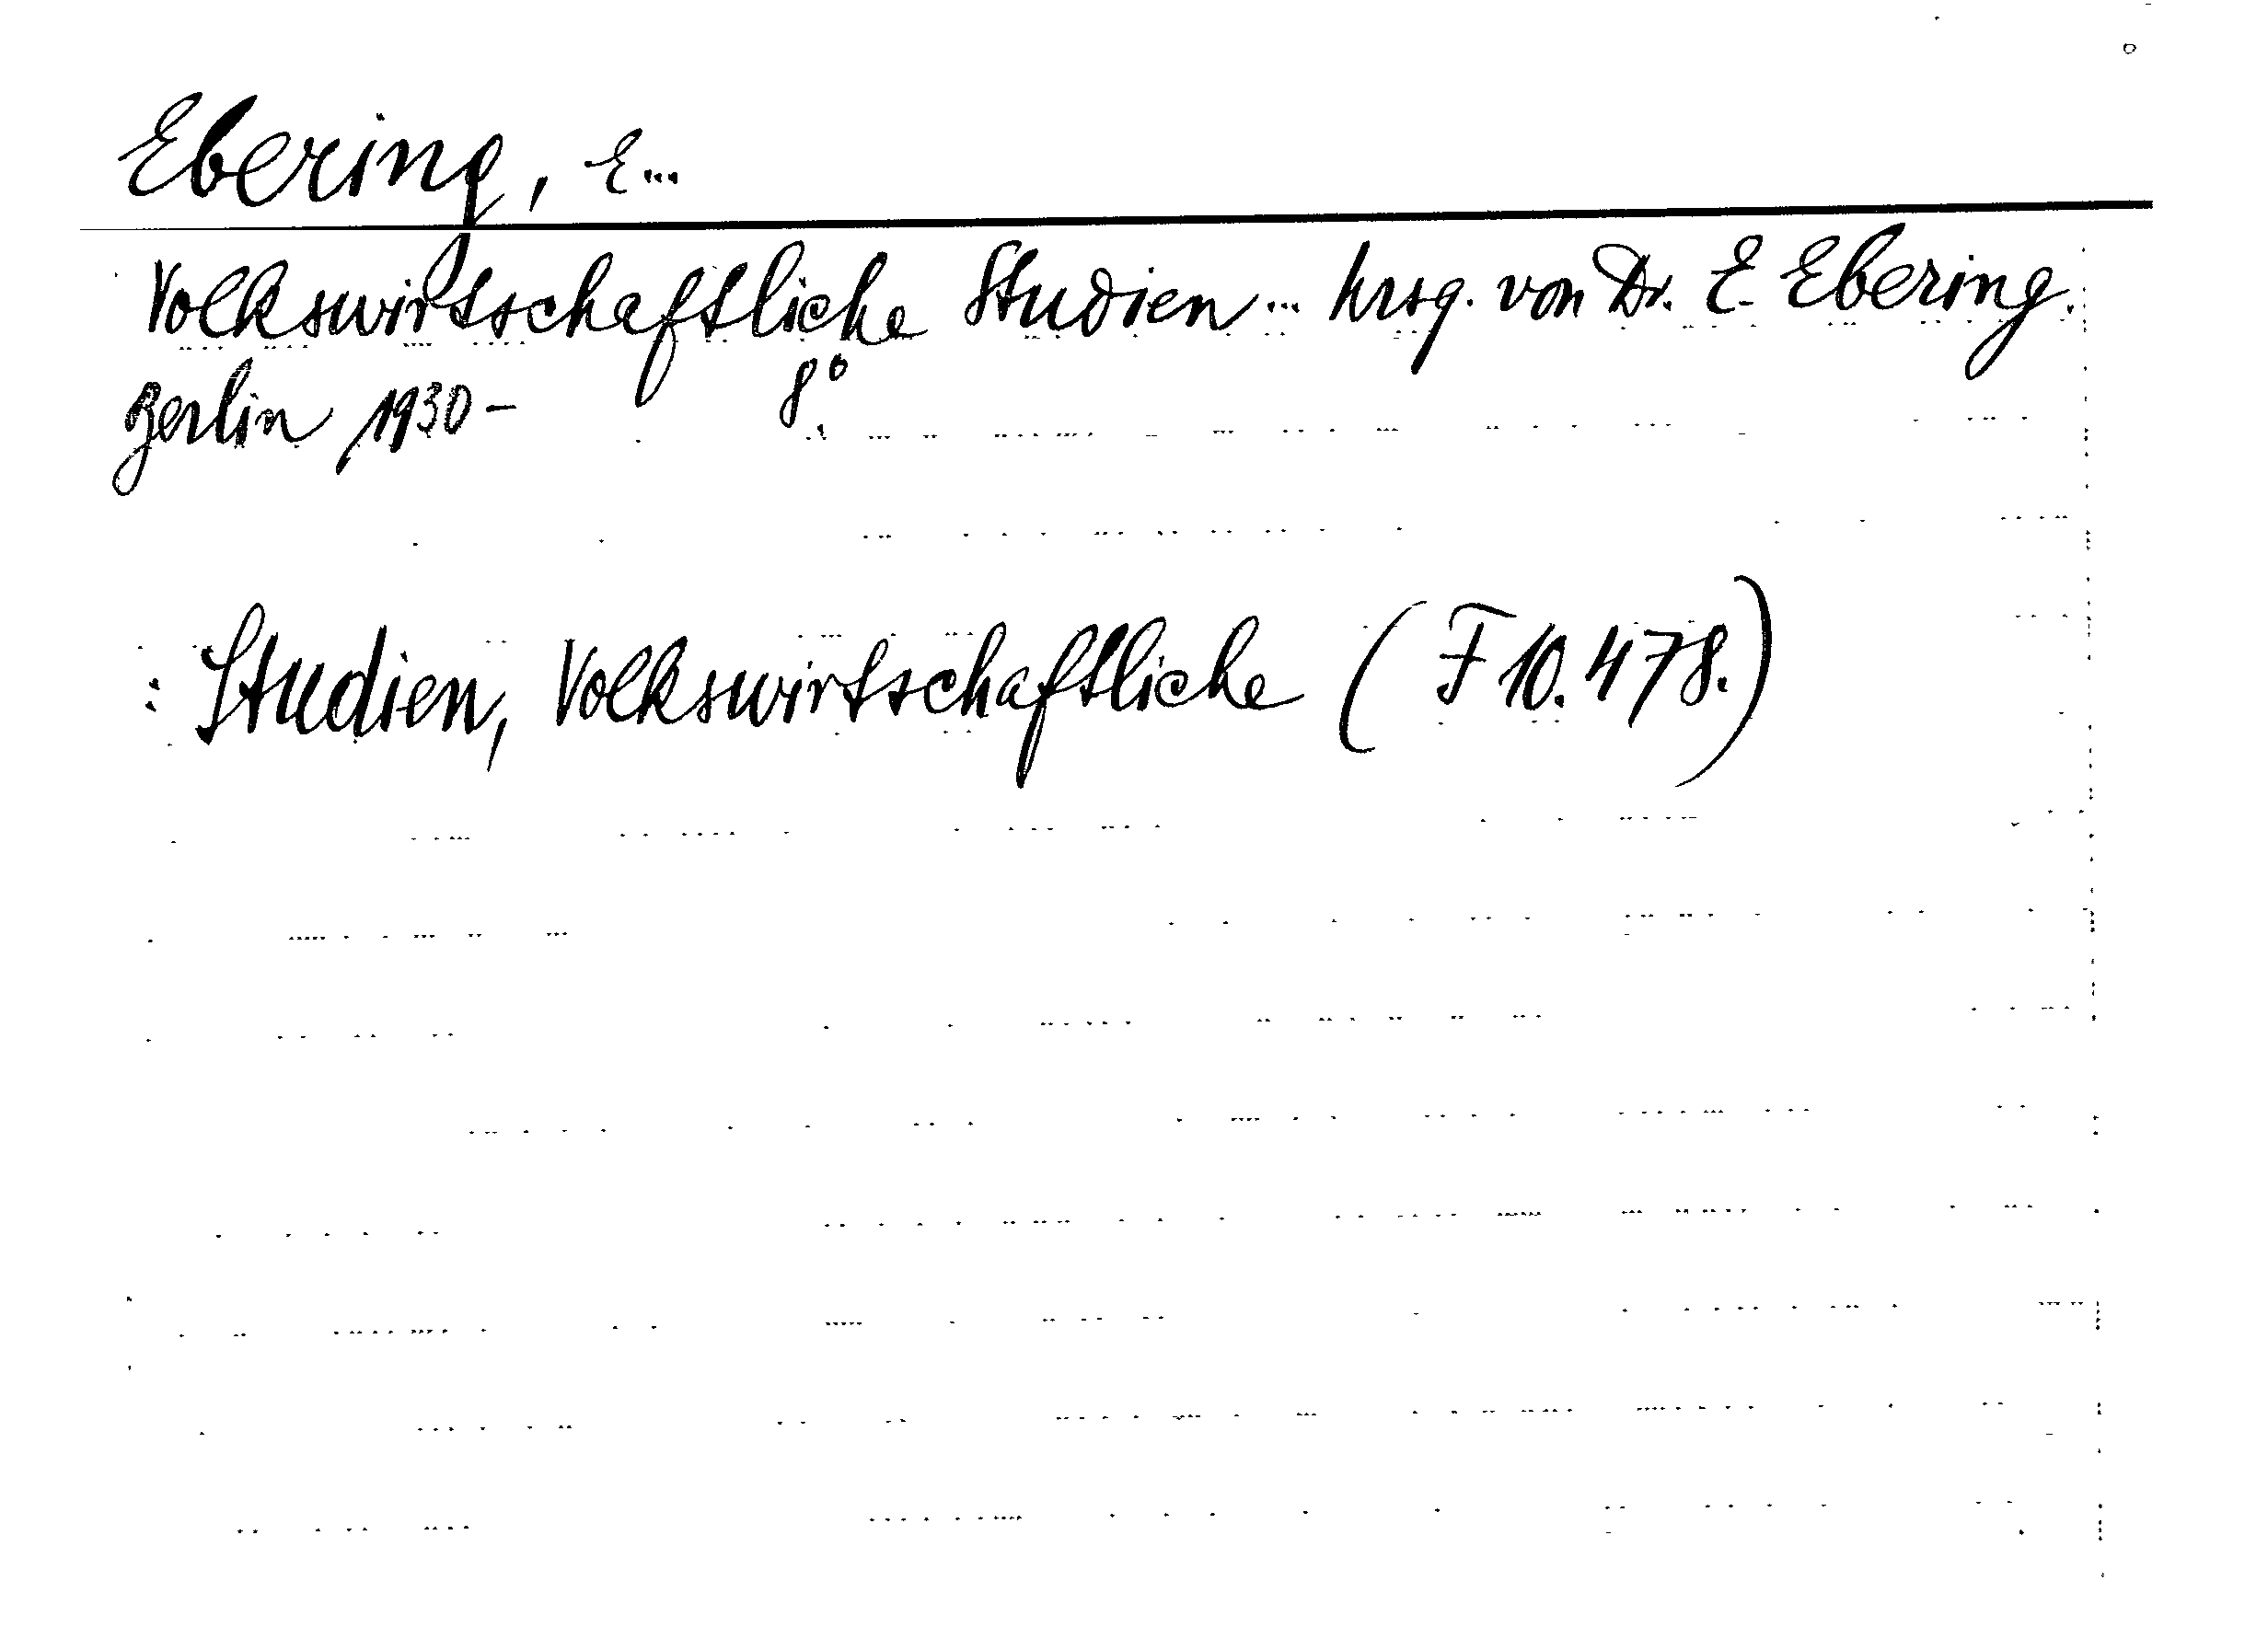 Ebering, E...
Volkswirtschaftliche Studien... hrsg. von Dr. E. Ebering.
Berlin 1930- 8°.
: Studien, Volkswirtschaftliche (F 10.478.)